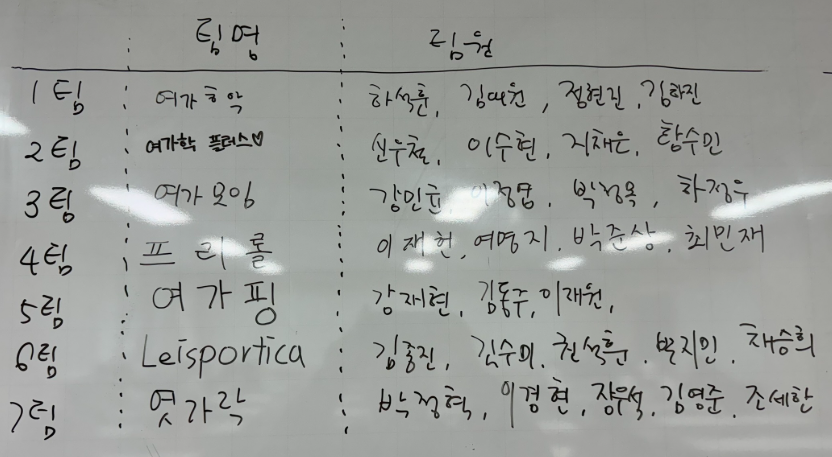 팀명 팀원
1팀 여가학악 하석훈, 김대원, 정현진, 김하진
2팀 여가학 플러스♡ 신우철, 이수현, 지채은, 함수민
3팀 여가모임 강민균, 이정엽, 박정욱, 하정우
4팀 프리롤 이재헌, 여명지, 박준상, 최민재
5팀 여가핑 강재현, 김동주, 이재원,
6팀 Leisportica 김종진, 김수미, 천석훈, 박지민, 채승희
7팀 엿가락 박정혁, 이경현, 장우석, 김영준, 조세한